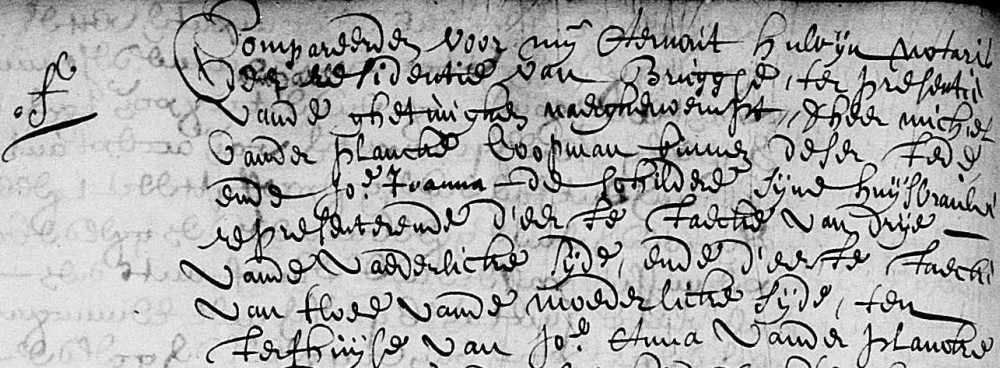 Compareerden voor mij Arnout Hulwijn notaris
der residentie van Brugghe, ter presentie
vande ghetuijghen naerghenoempt, dheer Michiel
vander Plancke coopman binnen deser stede
ende Joe. Joanna de Schildere sijne huijsvrauwe
representerende d'eerste staecke van drije
vande vaederlicke sijde, ende d'eerste staecke
van twee vande moederlicke sijde, ten
sterfhuijse van Joe. Anna vander Plancke